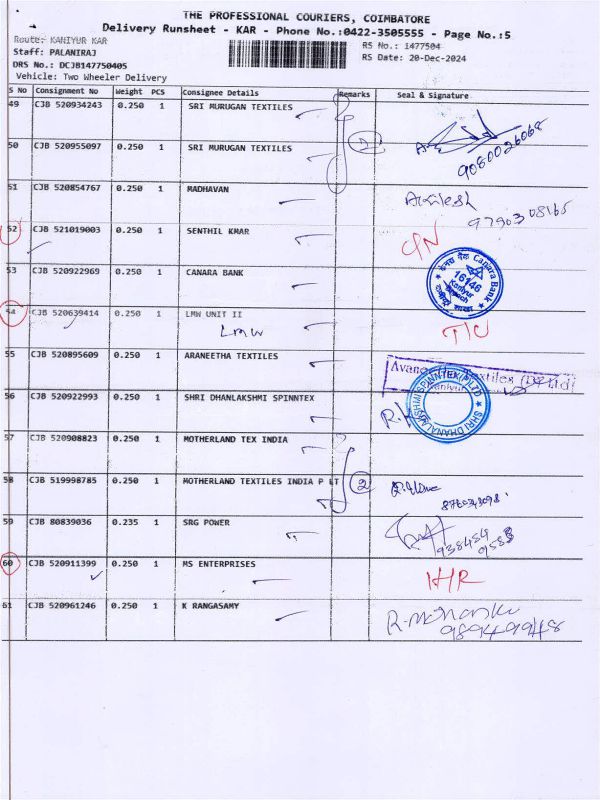 THE PROFESSIONAL COURIERS, COIMBATORE
Delivery Runsheet - KAR - Phone No.:0422-3505555 - Page No.:5
Route: KANIYUR KAR
RS No.: 1477504
Staff: PALANIRAJ
RS Date: 20-Dec-2024
DRS No.: DCJB147750405
Vehicle: Two Wheeler Delivery
S No Consignment No Weight PCS Consignee Details Remarks Seal & Signature
49 CJB 520934243 0.250 1 SRI MURUGAN TEXTILES
2
9080026068
50 CJB 520955097 0.250 1 SRI MURUGAN TEXTILES
51 CJB 520854767 0.250 1 MADHAVAN
9790308165
52 CJB 521019003 0.250 1 SENTHIL KMAR
53 CJB 520922969 0.250 1 CANARA BANK
केनरा बैंक Canara Bank
16146
Kaniyur
Branch
54 CJB 520639414 0.250 1 LMW UNIT II
LMW
55 CJB 520895609 0.250 1 ARANEETHA TEXTILES
56 CJB 520922993 0.250 1 SHRI DHANLAKSHMI SPINNTEX
SHRI DHANALAKSHMI SPINNTEX (P) LTD
57 CJB 520908823 0.250 1 MOTHERLAND TEX INDIA
58 CJB 519998785 0.250 1 MOTHERLAND TEXTILES INDIA P LT
2
59 CJB 80839036 0.235 1 SRG POWER
60 CJB 520911399 0.250 1 MS ENTERPRISES
61 CJB 520961246 0.250 1 K RANGASAMY